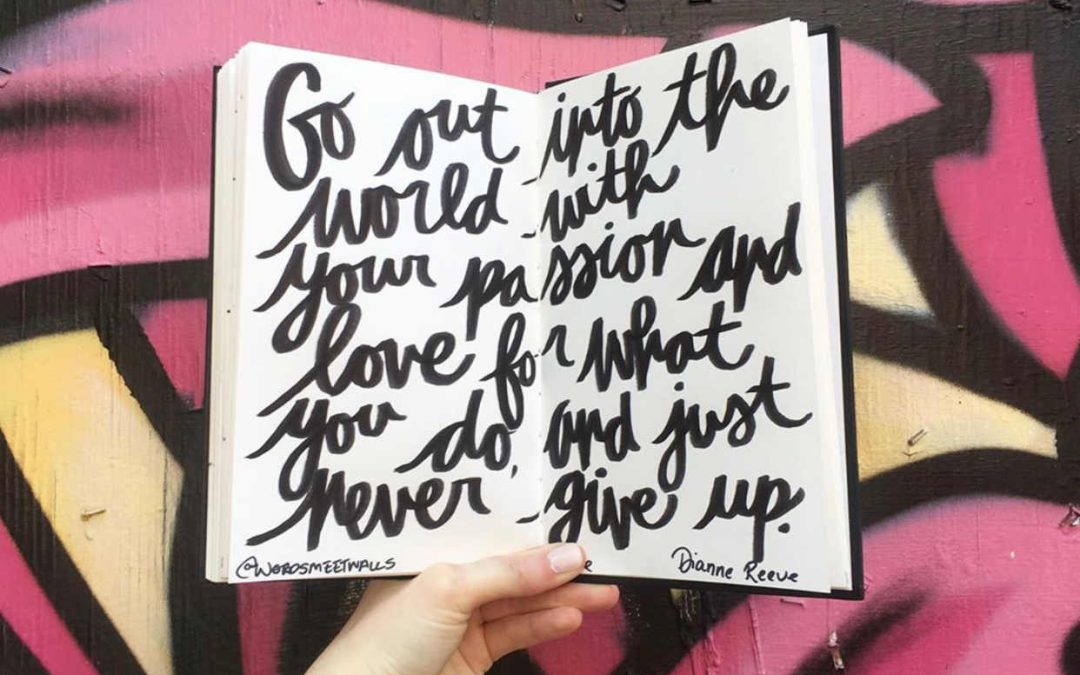 Go out into the
world with
your passion and
love for what
you do, and just
never give up.
@WORDSMEETWALLS Dianne Reeve